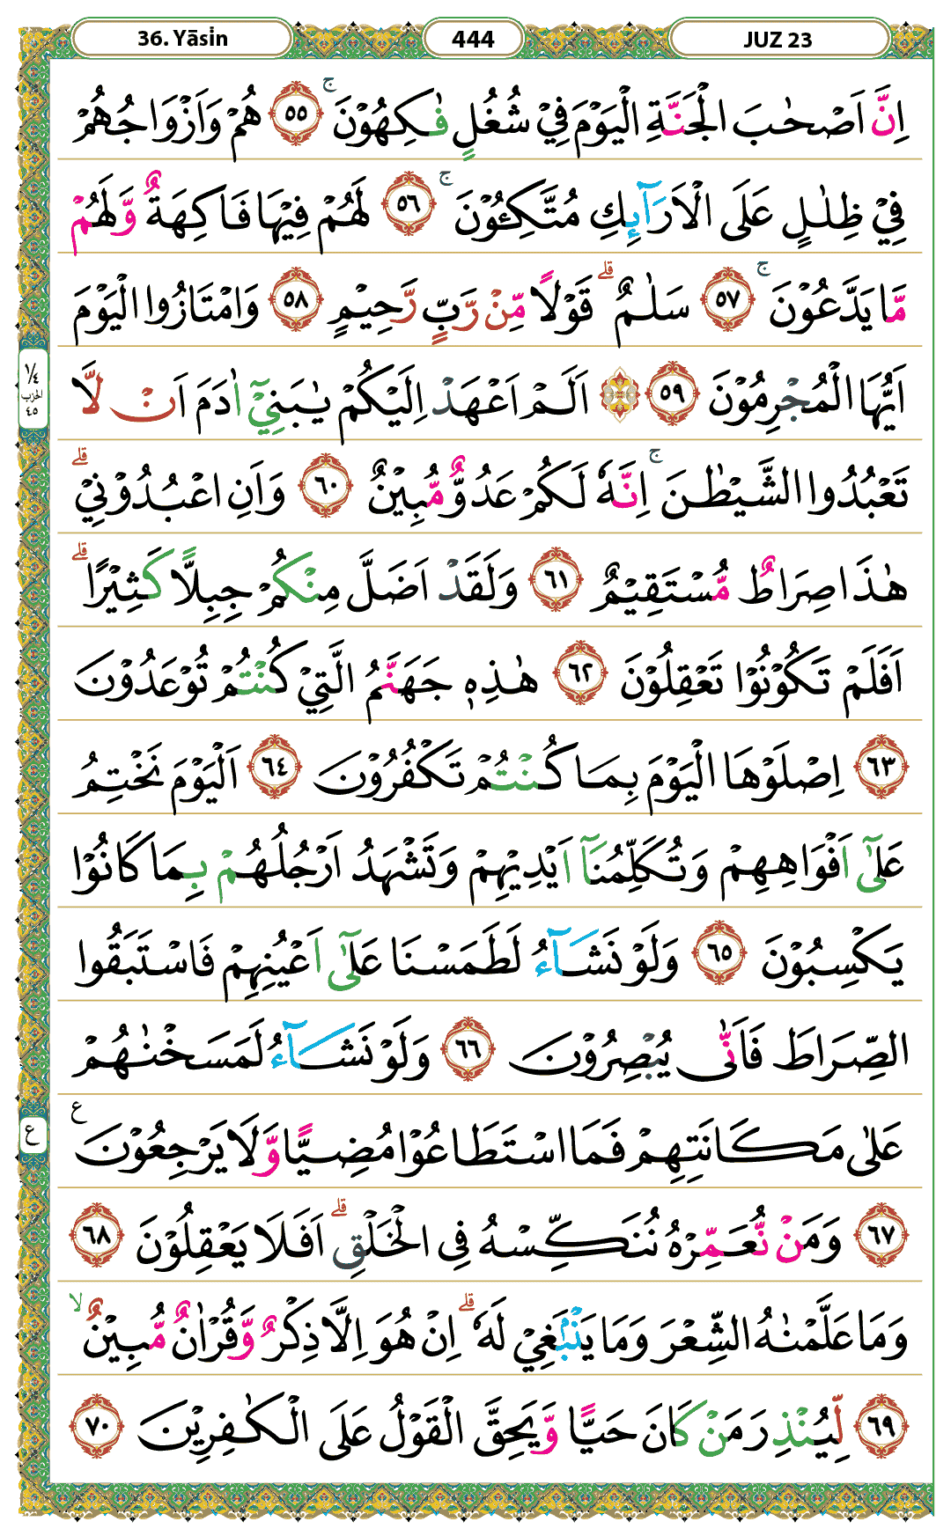 36. Yāsin 444 JUZ 23
اِنَّ اَصْحٰبَ الْجَنَّةِ الْيَوْمَ فِيْ شُغُلٍ فٰكِهُوْنَ ۚ ٥٥ هُمْ وَاَزْوَاجُهُمْ
فِيْ ظِلٰلٍ عَلَى الْاَرَاۤىِٕكِ مُتَّكِـُٔوْنَ ۚ ٥٦ لَهُمْ فِيْهَا فَاكِهَةٌ وَّلَهُمْ
مَّا يَدَّعُوْنَ ۚ ٥٧ سَلٰمٌ ۗ قَوْلًا مِّنْ رَّبٍّ رَّحِيْمٍ ٥٨ وَامْتَازُوا الْيَوْمَ
اَيُّهَا الْمُجْرِمُوْنَ ٥٩ ۞ اَلَمْ اَعْهَدْ اِلَيْكُمْ يٰبَنِيْٓ اٰدَمَ اَنْ لَّا
١/٤
الحزب
٤٥
تَعْبُدُوا الشَّيْطٰنَ ۚ اِنَّهٗ لَكُمْ عَدُوٌّ مُّبِيْنٌ ٦٠ وَاَنِ اعْبُدُوْنِيْ ۗ
هٰذَا صِرَاطٌ مُّسْتَقِيْمٌ ٦١ وَلَقَدْ اَضَلَّ مِنْكُمْ جِبِلًّا كَثِيْرًا ۗ
اَفَلَمْ تَكُوْنُوْا تَعْقِلُوْنَ ٦٢ هٰذِهٖ جَهَنَّمُ الَّتِيْ كُنْتُمْ تُوْعَدُوْنَ
٦٣ اِصْلَوْهَا الْيَوْمَ بِمَا كُنْتُمْ تَكْفُرُوْنَ ٦٤ اَلْيَوْمَ نَخْتِمُ
عَلٰٓى اَفْوَاهِهِمْ وَتُكَلِّمُنَآ اَيْدِيْهِمْ وَتَشْهَدُ اَرْجُلُهُمْ بِمَا كَانُوْا
يَكْسِبُوْنَ ٦٥ وَلَوْ نَشَاۤءُ لَطَمَسْنَا عَلٰٓى اَعْيُنِهِمْ فَاسْتَبَقُوا
الصِّرَاطَ فَاَنّٰى يُبْصِرُوْنَ ٦٦ وَلَوْ نَشَاۤءُ لَمَسَخْنٰهُمْ
عَلٰى مَكَانَتِهِمْ فَمَا اسْتَطَاعُوْا مُضِيًّا وَّلَا يَرْجِعُوْنَ ࣖ
ع
٦٧ وَمَنْ نُّعَمِّرْهُ نُنَكِّسْهُ فِى الْخَلْقِ ۗ اَفَلَا يَعْقِلُوْنَ ٦٨
وَمَا عَلَّمْنٰهُ الشِّعْرَ وَمَا يَنْۢبَغِيْ لَهٗ ۗ اِنْ هُوَ اِلَّا ذِكْرٌ وَّقُرْاٰنٌ مُّبِيْنٌ ۙ
٦٩ لِّيُنْذِرَ مَنْ كَانَ حَيًّا وَّيَحِقَّ الْقَوْلُ عَلَى الْكٰفِرِيْنَ ٧٠